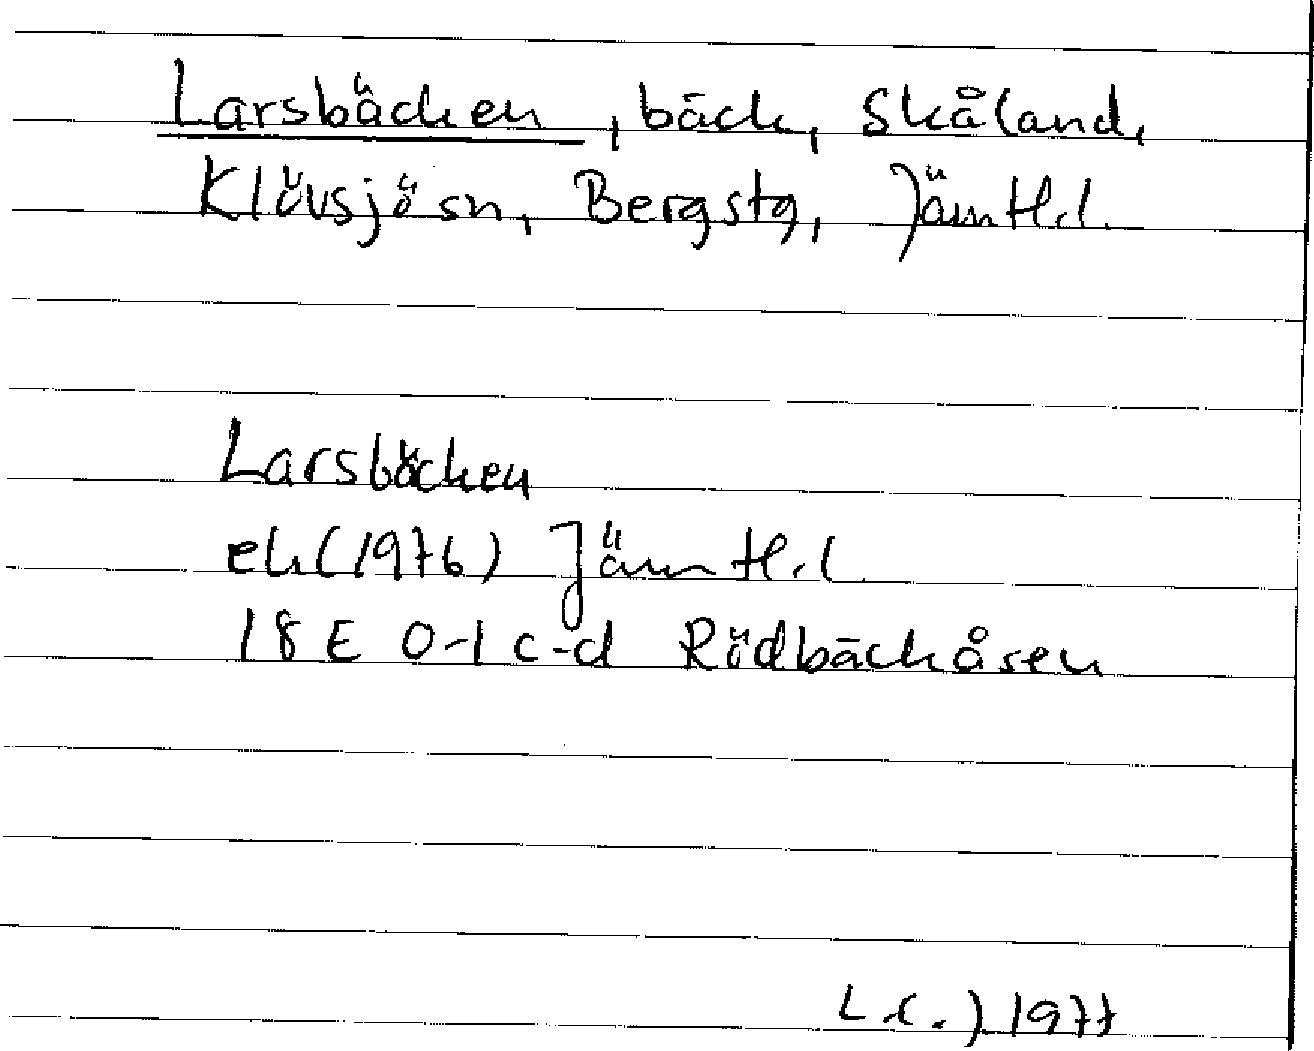 Larsbäcken, bäck, Skåland,
Klövsjö sn, Bergs tg, Jämtl.l.
Larsbäcken
ek (1976) Jämtl.l
18 E 0-1 c-d Rödbäckåsen
1977